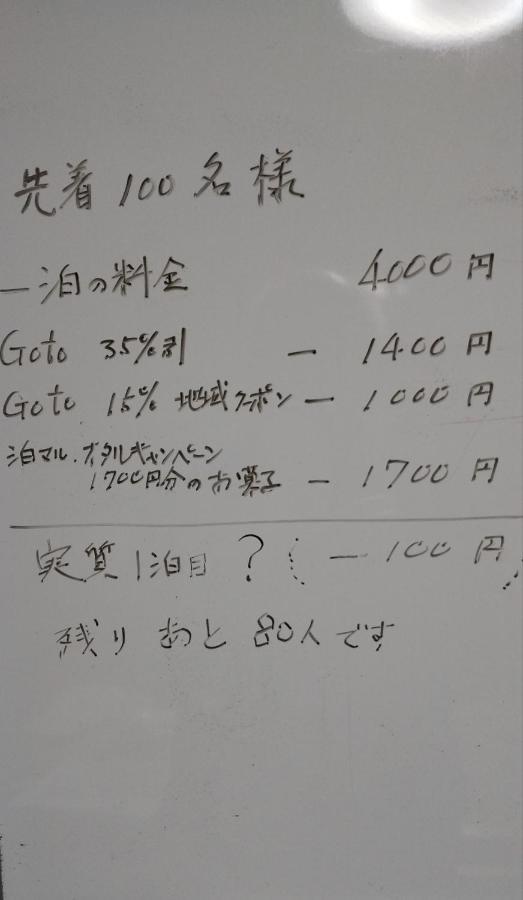 先着100名様
一泊の料金 4000円
Goto 35%割 － 1400円
Goto 15% 地域クーポン － 1000円
泊マル.オタルキャンペーン
1700円分のお菓子 － 1700円
実質1泊目 ? (－100円)
残り あと 80人です